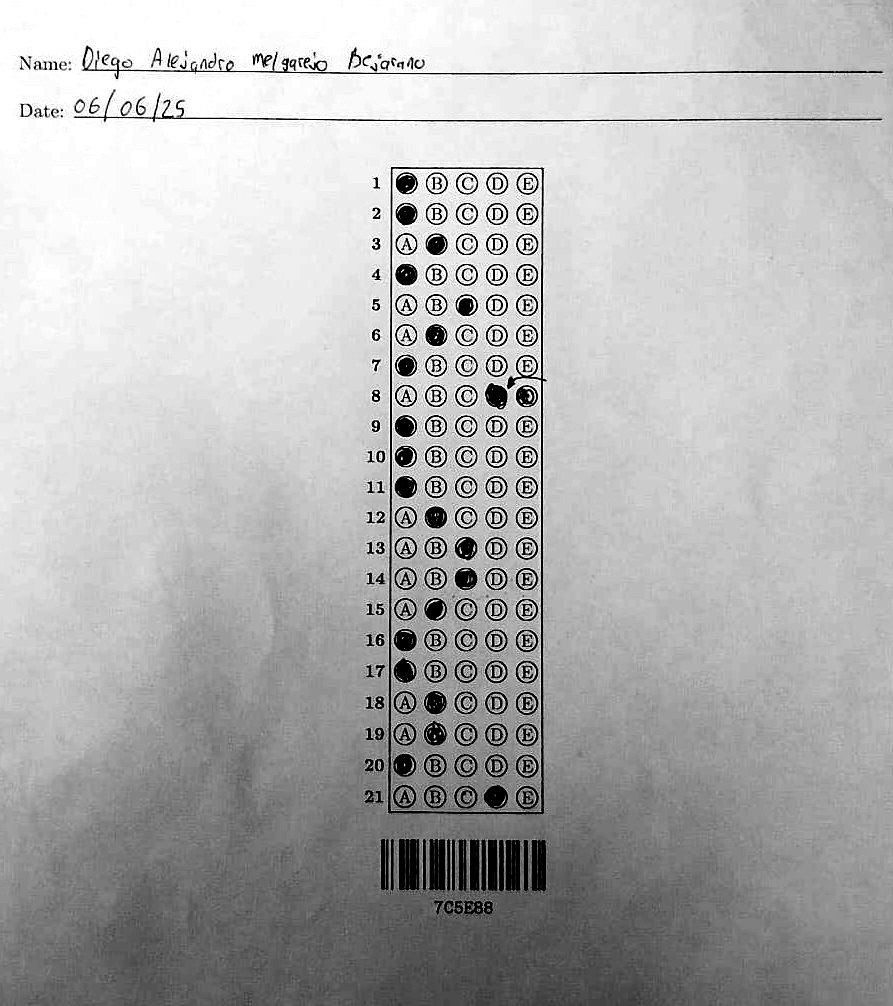 Name: Diego Alejandro melgarejo Bejarano
Date: 06/06/25
1 B C D E
2 B C D E
3 A C D E
4 B C D E
5 A B D E
6 A C D E
7 B C D E
8 A B C
9 B C D E
10 B C D E
11 B C D E
12 A C D E
13 A B D E
14 A B D E
15 A C D E
16 B C D E
17 B C D E
18 A C D E
19 A C D E
20 B C D E
21 A B C E
7C5E88